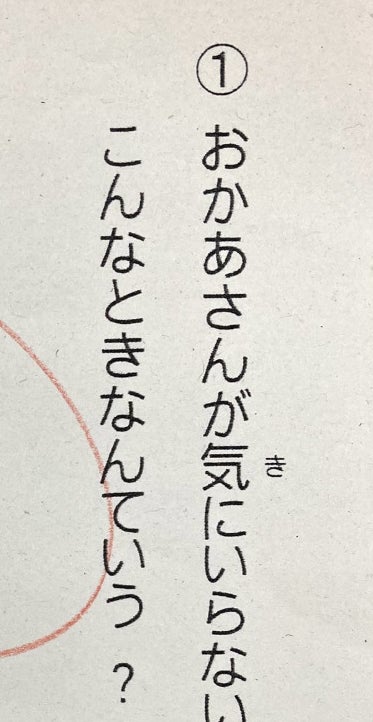 ① おかあさんが気にいらない
き
こんなときなんていう?